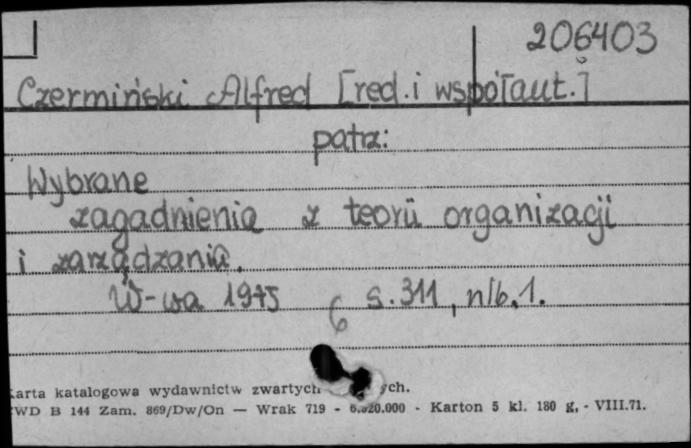 206403
Czermiński Alfred [red. i współaut.]
patrz:
Wybrane
zagadnienia z teorii organizacji
i zarządzania.
W-wa 1975 s. 311, nlb. 1.
6
Karta katalogowa wydawnictw zwartych
WD B 144 Zam. 869/Dw/On — Wrak 719 - .000 - Karton 5 kl. 180 g, - VIII.71.